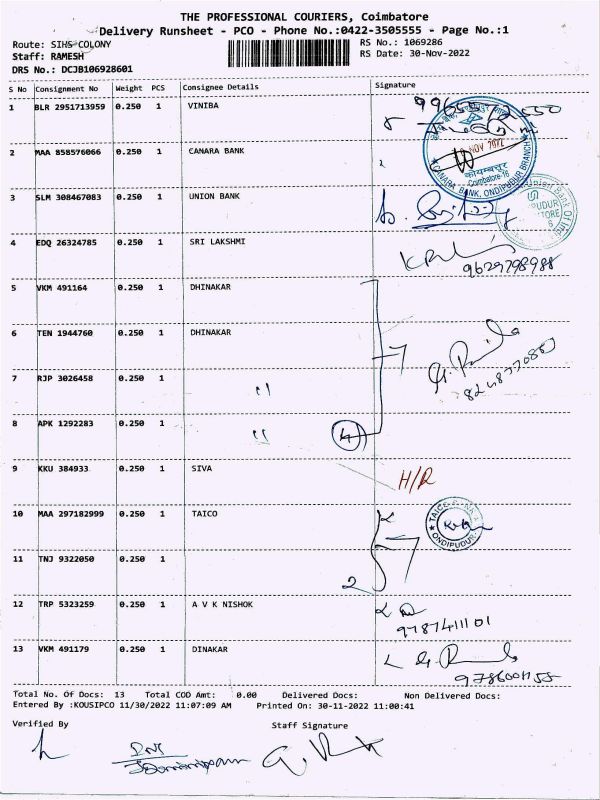 THE PROFESSIONAL COURIERS, Coimbatore
Delivery Runsheet - PCO - Phone No.:0422-3505555 - Page No.:1
Route: SIHS COLONY
Staff: RAMESH
DRS No.: DCJB106928601
RS No.: 1069286
RS Date: 30-Nov-2022
S No Consignment No Weight PCS Consignee Details Signature
1 BLR 2951713959 0.250 1 VINIBA
2 MAA 858576066 0.250 1 CANARA BANK
NOV 2022
कोयम्बत्तूर
Coimbatore-16
CANARA BANK, ONDIPUDUR BRANCH
3 SLM 308467083 0.250 1 UNION BANK
Union Bank Of
4 EDQ 26324785 0.250 1 SRI LAKSHMI
9629798988
5 VKM 491164 0.250 1 DHINAKAR
6 TEN 1944760 0.250 1 DHINAKAR
7 RJP 3026458 0.250 1 "
8 APK 1292283 0.250 1 " 4
9 KKU 384933 0.250 1 SIVA H/R
10 MAA 297182999 0.250 1 TAICO
ONDIPUDUR
11 TNJ 9322050 0.250 1
2
12 TRP 5323259 0.250 1 A V K NISHOK
9787411101
13 VKM 491179 0.250 1 DINAKAR
Total No. Of Docs: 13 Total COD Amt: 0.00 Delivered Docs: Non Delivered Docs:
Entered By :KOUSIPCO 11/30/2022 11:07:09 AM Printed On: 30-11-2022 11:00:41
Verified By Staff Signature